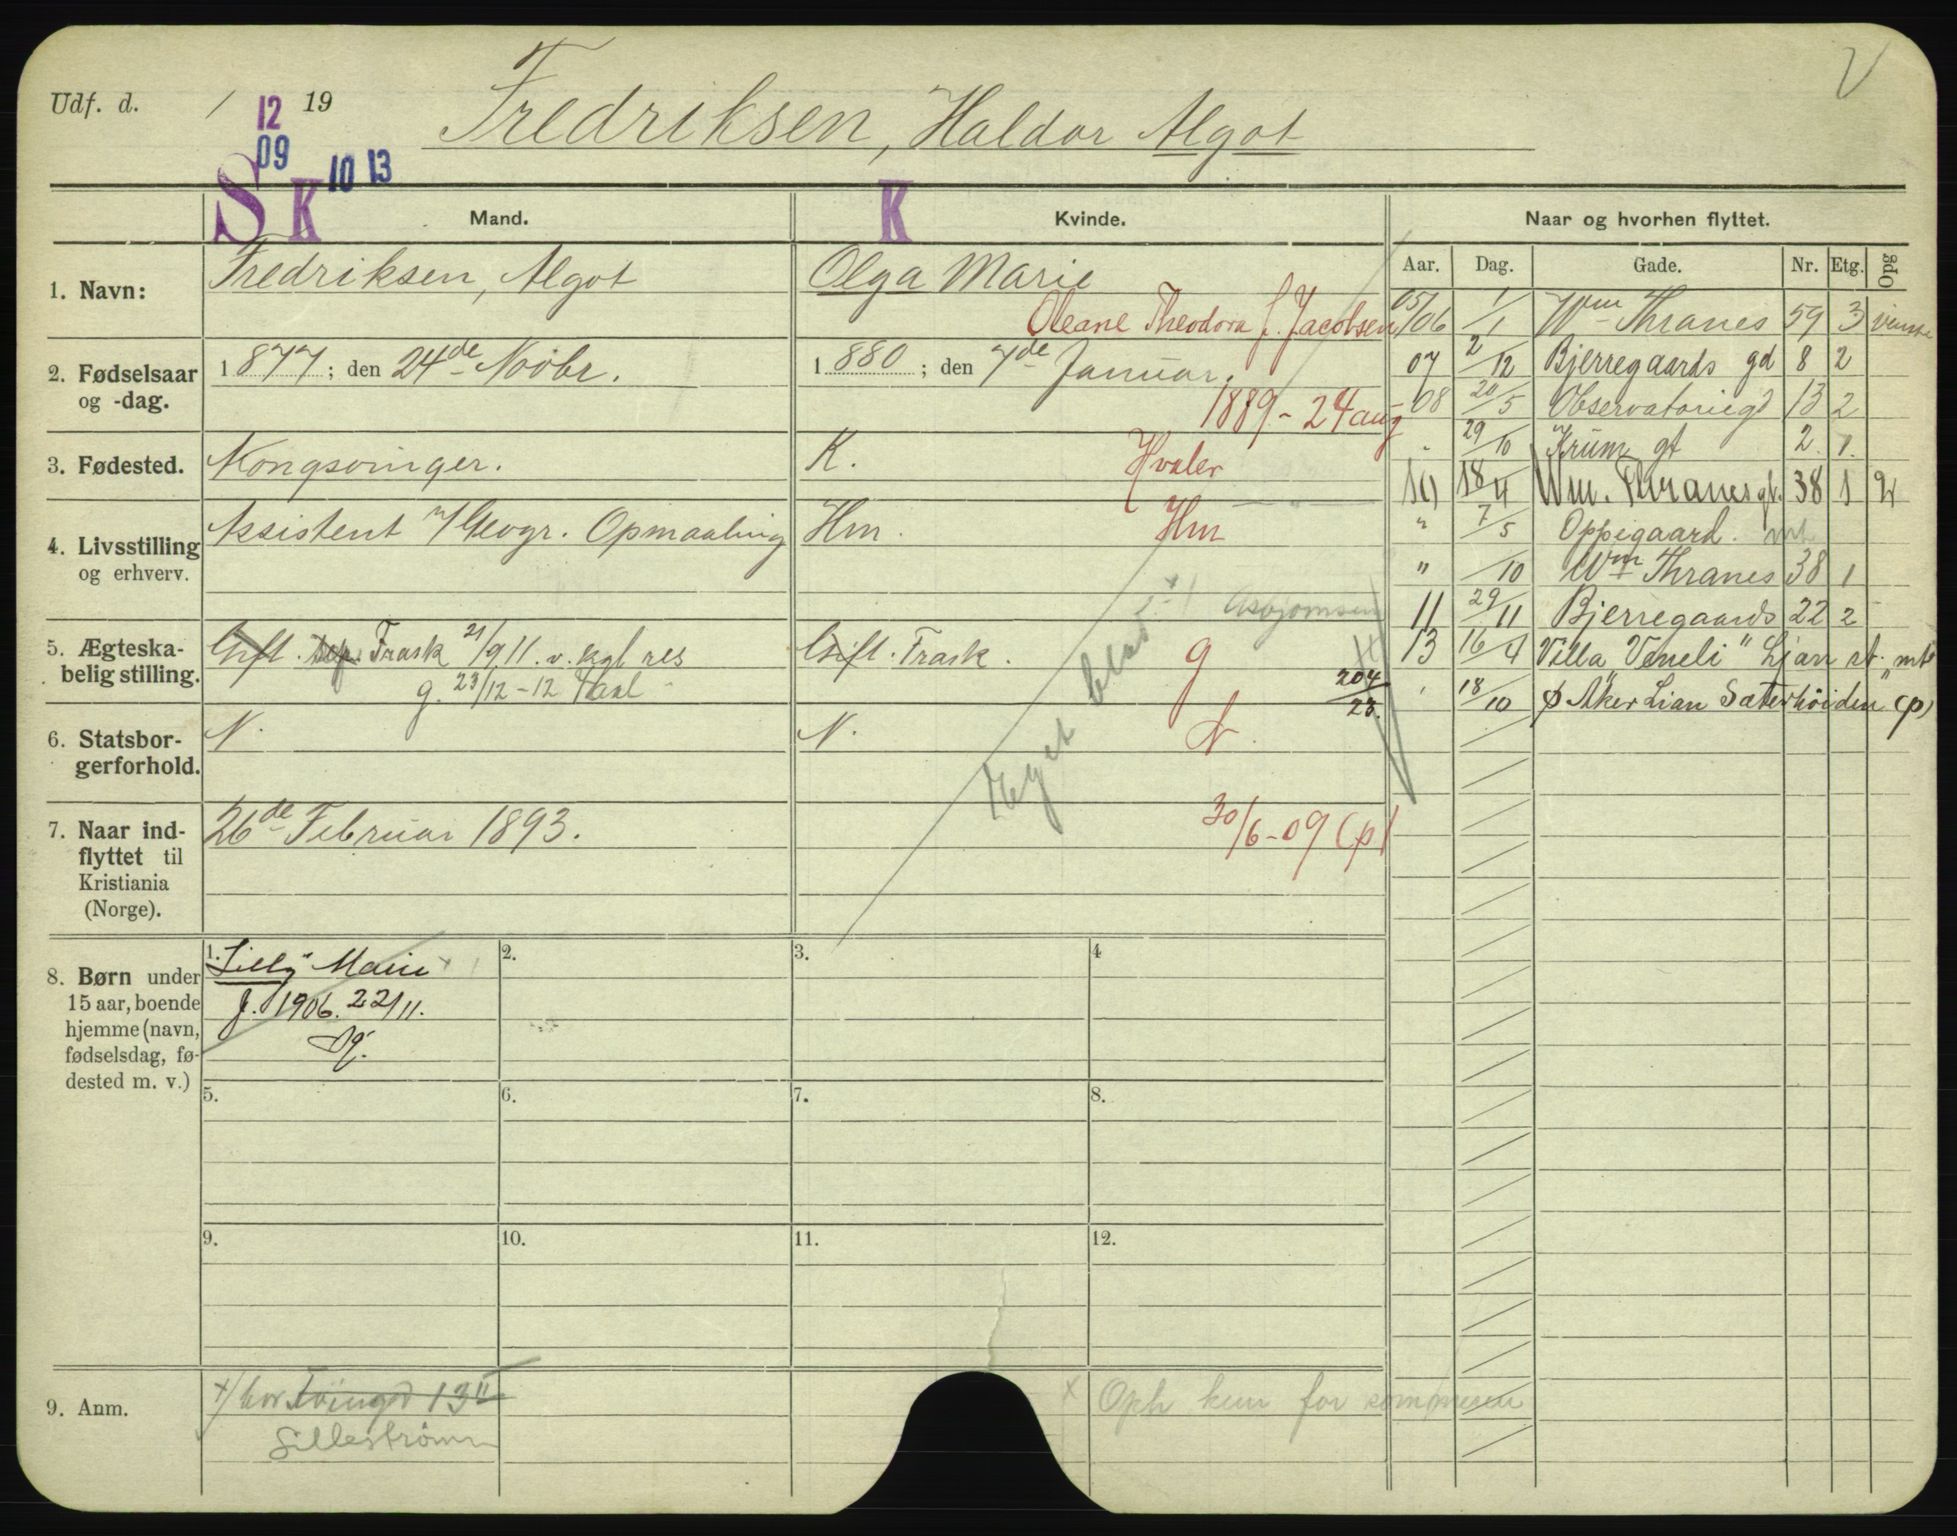 Udf. d. / 12 19
Fredriksen, Haldor Algot
V
09
10 13
S K
K
Mand.
Kvinde.
Naar og hvorhen flyttet.
Aar. Dag. Gade. Nr. Etg. Opg
1. Navn:
Fredriksen, Algot
Olga Marie
Oleane Theodora f. Jacobsen
2. Fødselsaar
og -dag.
1877; den 24de Novbr.
1880; den 7de Januar.
1889 - 24 aug
3. Fødested.
Kongsvinger.
K.
Hvaler
4. Livsstilling
og erhverv.
Assistent v/Geogr. Opmaaling
Hm.
Hm
Asbjørnsen
5. Ægteska-
belig stilling.
Gift. sep. Frask 21/9 11. v. kgl res
g. 23/12-12
Gift. Frask.
g
204/23.
6. Statsbor-
gerforhold.
N.
N.
N.
Eget blad
7. Naar ind-
flyttet til
Kristiania
(Norge).
26de Februar 1893.
30/6-09 (p)
05/06 1/1 Wm Thranes 59 3 venstre
07 2/12 Bjerregaards gd 8 2
08 20/5 Observatoriegd 13 2
" 29/10 Krum gt 2. 1.
10 18/4 Wm. Thranes gt. 38 1
" 7/5 Oppegaard. mt
" /10 Wm Thranes 38 1
11 29/11 Bjerregaards 22 2
13 16/4 Villa "Veneli" Ljan st. mt
' 18/10 Aker Lian "Sæterhöiden" (p)
8. Børn under
15 aar, boende
hjemme (navn,
fødselsdag, fø-
dested m. v.)
1. Lilly Marie
f. 1906. 22/11.
2.
3.
4
5.
6.
7.
8.
9.
10.
11.
12.
9. Anm.
x/ hos 13 II
Lillestrømm
x Oph kun for sommeren